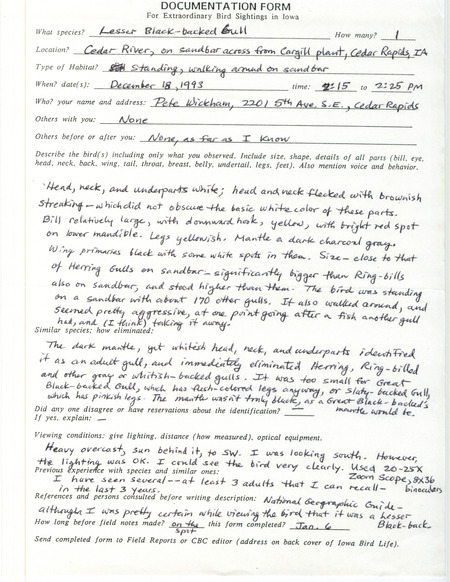 DOCUMENTATION FORM
For Extraordinary Bird Sightings in Iowa
What species? Lesser Black-backed Gull How many? 1
Location? Cedar River, on sandbar across from Cargill plant, Cedar Rapids, IA
Type of Habitat? Standing, walking around on sandbar
When? date(s): December 18, 1993 time: 2:15 to 2:25 PM
Who? your name and address: Pete Wickham, 2201 5th Ave S.E., Cedar Rapids
Others with you: None
Others before or after you: None, as far as I know
Describe the bird(s) including only what you observed. Include size, shape, details of all parts (bill, eye,
head, neck, back, wing, tail, throat, breast, belly, undertail, legs, feet). Also mention voice and behavior.
Head, neck, and underparts white; head and neck flecked with brownish
streaking - which did not obscure the basic white color of these parts.
Bill relatively large, with downward hook, yellow, with bright red spot
on lower mandible. Legs yellowish. Mantle a dark charcoal gray.
Wing primaries black with some white spots in them. Size - close to that
of Herring Gulls on sandbar - significantly bigger than Ring-bills
also on sandbar, and stood higher than them. The bird was standing
on a sandbar with about 170 other gulls. It also walked around, and
seemed pretty aggressive, at one point going after a fish another gull
had, and (I think) taking it away.
Similar species; how eliminated:
The dark mantle, yet whitish head, neck, and underparts identified
it as an adult gull, and immediately eliminated Herring, Ring-billed
and other gray or whitish-backed gulls. It was too small for Great
Black-backed Gull, which has flesh-colored legs anyway, or Slaty-backed Gull,
which has pinkish legs. The mantle wasn't truly black, as a Great Black-backed's
mantle would be.
Did any one disagree or have reservations about the identification? —
If yes, explain: —
Viewing conditions: give lighting, distance (how measured), optical equipment.
Heavy overcast, sun behind it, to SW. I was looking south. However,
the lighting was OK. I could see the bird very clearly. Used 20-25X
Zoom Scope, 8X36
binoculars
Previous experience with species and similar ones:
I have seen several -- at least 3 adults that I can recall -
in the last 3 years.
References and persons consulted before writing description: National Geographic Guide -
although I was pretty certain while viewing the bird that it was a Lesser
Black-back
How long before field notes made? on the spot this form completed? Jan. 6
Send completed form to Field Reports or CBC editor (address on back cover of Iowa Bird Life).